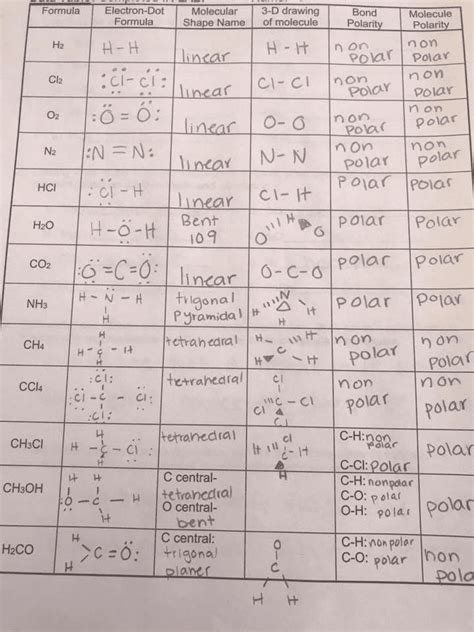 Formula Electron-Dot Formula Molecular Shape Name 3-D drawing of molecule Bond Polarity Molecule Polarity
H2 H - H linear H - H non polar non polar
Cl2 :Cl - Cl: linear Cl - Cl non polar non polar
O2 :O = O: linear O - O non polar non polar
N2 :N = N: linear N - N non polar non polar
HCl :Cl - H linear Cl - H polar polar
H2O H - O - H Bent 109 O H O polar polar
CO2 :O = C = O: linear O - C - O polar polar
NH3 H - N - H H trigonal pyramidal H N H H polar polar
CH4 H H - C - H H tetrahedral H H C H H non polar non polar
CCl4 :Cl: :Cl - C - Cl: :Cl: tetrahedral Cl C - Cl Cl Cl non polar non polar
CH3Cl H H - C - Cl: H tetrahedral Cl H C - H H C-H: non polar C-Cl: polar polar
CH3OH H H :O - C - H H C central- tetrahedral O central- bent C-H: nonpolar C-O: polar O-H: polar polar
H2CO H H > C = O: C central: trigonal planer O C H H C-H: nonpolar C-O: polar non polar